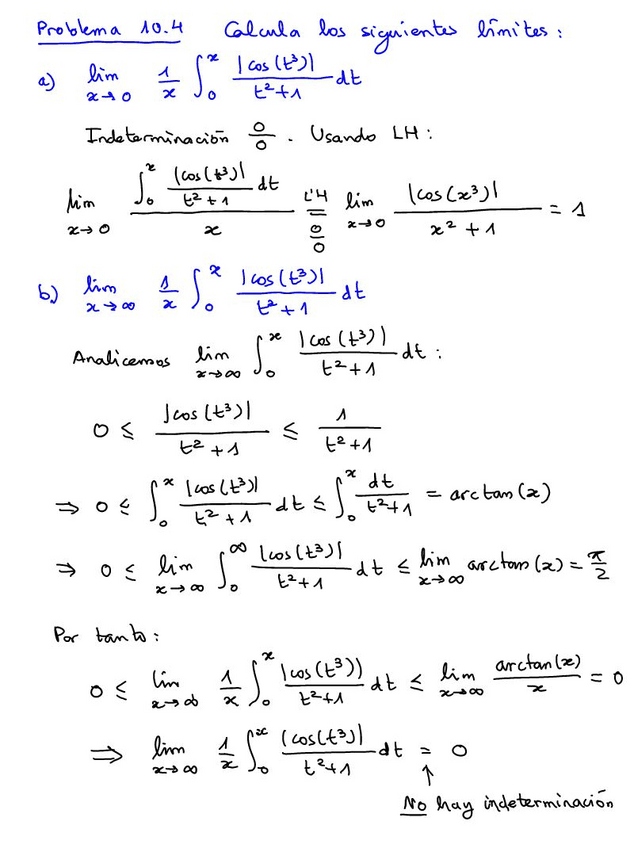 Problema 10.4 Calcula los siguientes límites:
a) lim x→0 1/x ∫₀ˣ |cos(t³)|/(t²+1) dt
Indeterminación 0/0. Usando LH:
lim x→0 (∫₀ˣ |cos(t³)|/(t²+1) dt)/x = L'H 0/0 lim x→0 |cos(x³)|/(x²+1) = 1
b) lim x→∞ 1/x ∫₀ˣ |cos(t³)|/(t²+1) dt
Analicemos lim x→∞ ∫₀ˣ |cos(t³)|/(t²+1) dt :
0 ≤ |cos(t³)|/(t²+1) ≤ 1/(t²+1)
⇒ 0 ≤ ∫₀ˣ |cos(t³)|/(t²+1) dt ≤ ∫₀ˣ dt/(t²+1) = arctan(x)
⇒ 0 ≤ lim x→∞ ∫₀^∞ |cos(t³)|/(t²+1) dt ≤ lim x→∞ arctan(x) = π/2
Por tanto:
0 ≤ lim x→∞ 1/x ∫₀ˣ |cos(t³)|/(t²+1) dt ≤ lim x→∞ arctan(x)/x = 0
⟹ lim x→∞ 1/x ∫₀ˣ |cos(t³)|/(t²+1) dt = 0
↑
No hay indeterminación